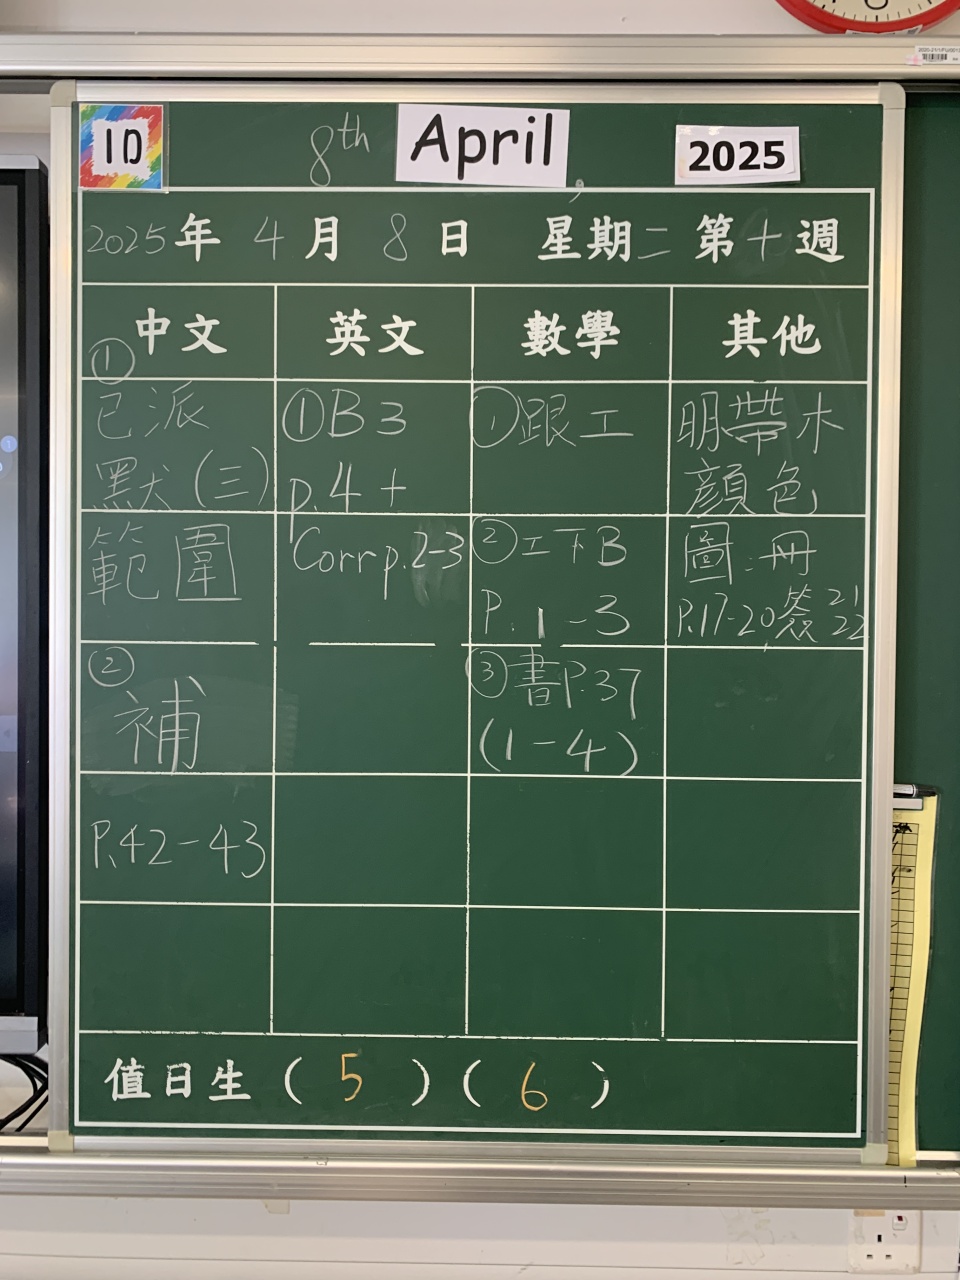 1D
8th April 2025
2025年 4月 8日 星期二 第十週
中文 英文 數學 其他
①
已派
默(三)
範圍
②
補
P.42-43
①B3
p.4+
Corr p.2-3
①跟工
②工下B
P.1-3
③書P.37
(1-4)
明帶木
顏色
圖:冊
P.17-20簽21
22
值日生(5)(6)